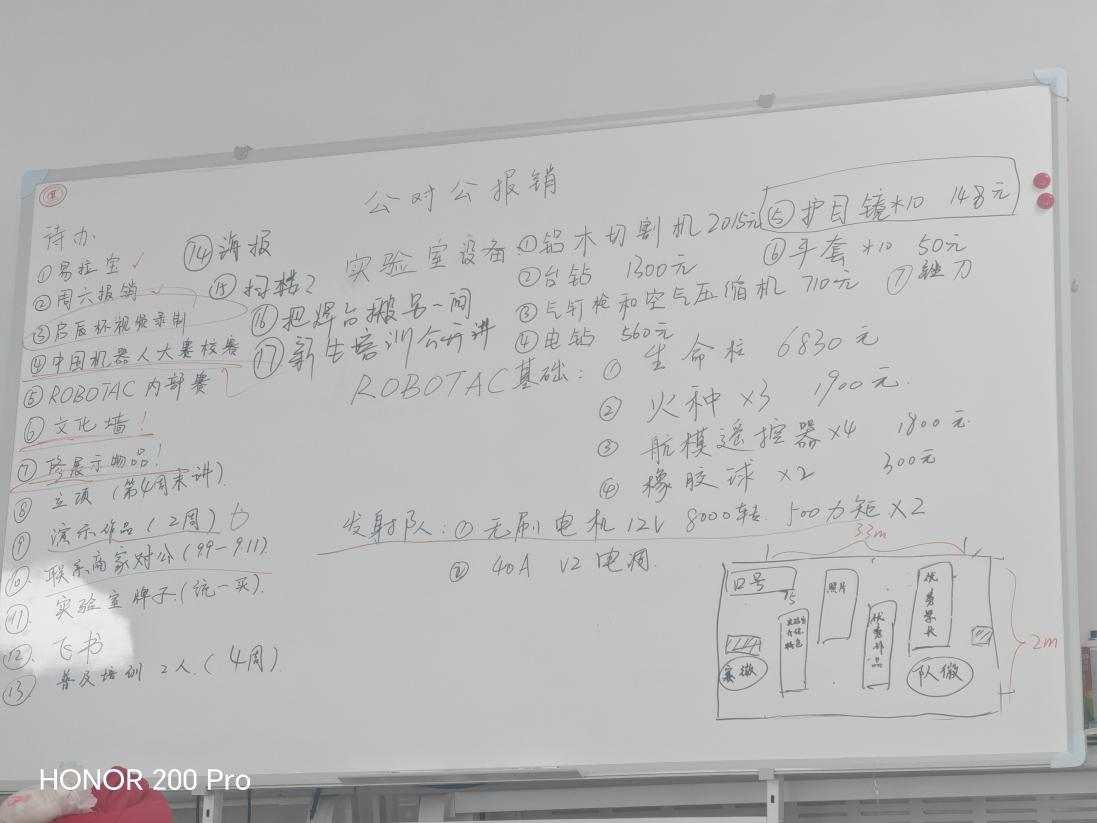 待办
①易拉宝 ✓
②周六报销 ✓
③启辰杯视频录制
④中国机器人大赛校赛
⑤ROBOTAC内部赛
⑥文化墙！
⑦修展示物品！
⑧立项（第4周末讲）
⑨演示作品（2周）
⑩联系商家对公（9.9-9.11）
⑪实验室牌子（统一买）
⑫飞书
⑬普及培训 2人（4周）
⑭海报
⑮扫楼？
⑯把焊台搬另一间
⑰新生培训公开讲
公对公报销
实验室设备：①铝木切割机 2015元
②台钻 1300元
③气钉枪和空气压缩机 710元
④电钻 560元
⑤护目镜*10 148元
⑥手套*10 50元
⑦锉刀
ROBOTAC基础：①生命柱 6830元
②火种×3 1900元
③航模遥控器×4 1800元
④橡胶球×2 300元
发射队：①无刷电机12V 8000转 500力矩×2
②40A V2电调
3.3m
2m
口号
照片
优秀学长
优秀作品
队徽
HONOR 200 Pro